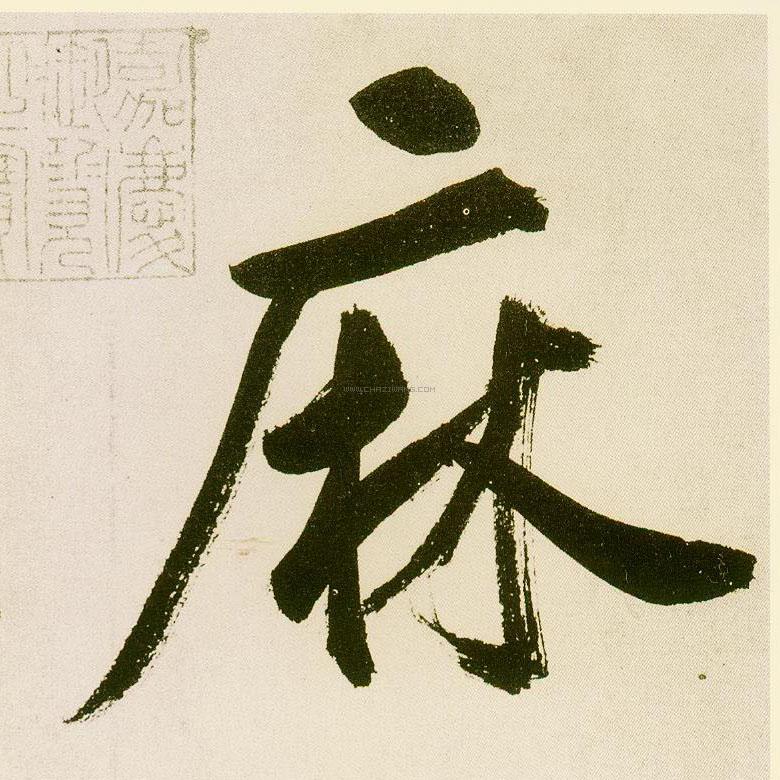 麻
嘉慶
御覽
WWW.CHAZIWANG.COM